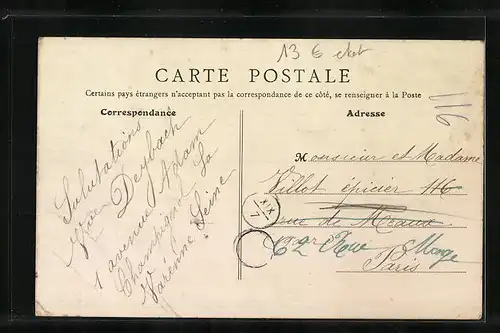 13 €
CARTE POSTALE
Certains pays étrangers n'acceptant pas la correspondance de ce côté, se renseigner à la Poste
Correspondance
Adresse
116
Salutations
Deybach
1 avenue
Champigny La
Varenne Seine
Monsieur et Madame
Villot épicier 116
rue de Meaux
62 Rue Monge
Paris
XIX
7